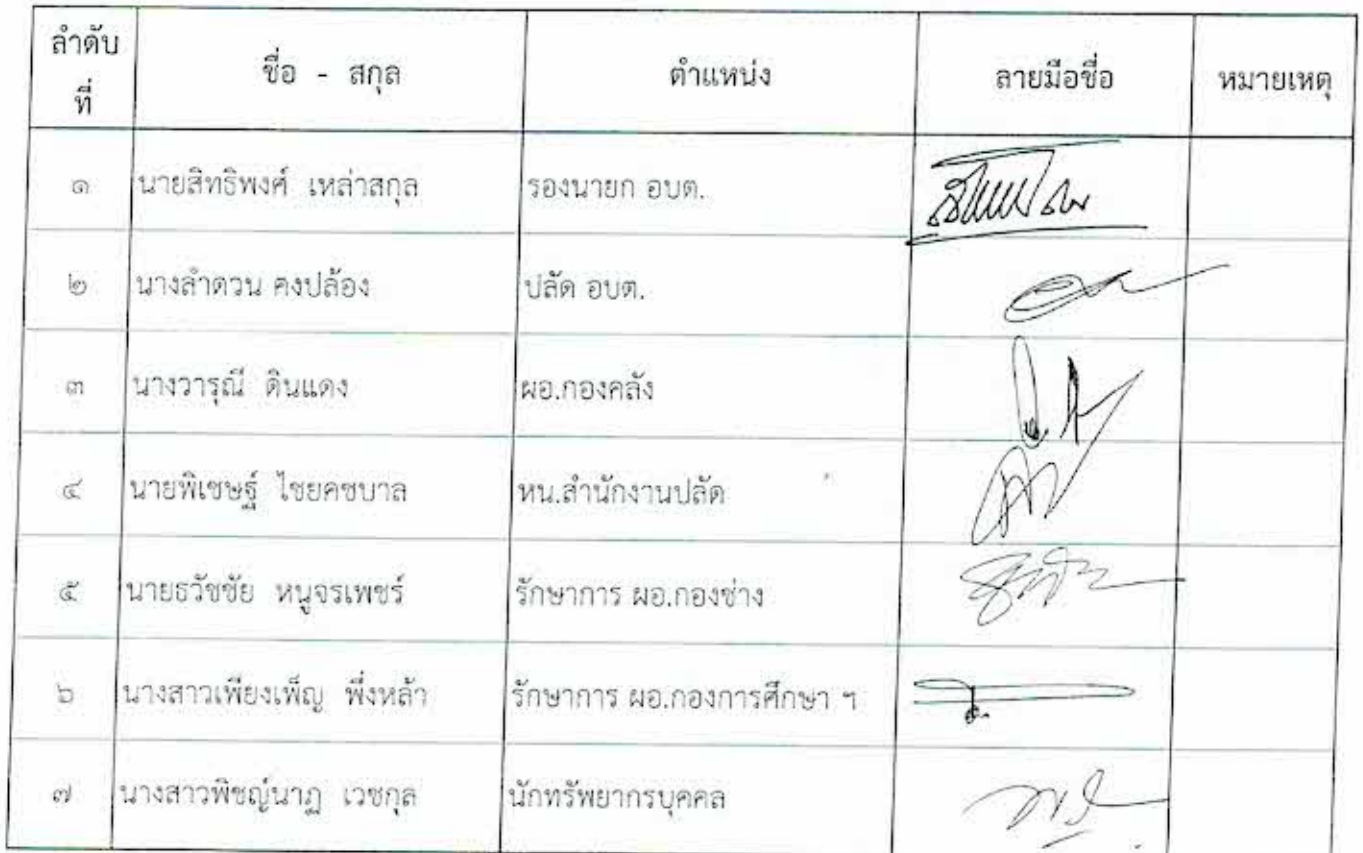 ลำดับ
ที่
ชื่อ - สกุล
ตำแหน่ง
ลายมือชื่อ
หมายเหตุ
๑ นายสิทธิพงศ์ เหล่าสกุล รองนายก อบต.
๒ นางลำดวน คงปล้อง ปลัด อบต.
๓ นางวารุณี ดินแดง ผอ.กองคลัง
๔ นายพิเชษฐ์ ไชยคชบาล หน.สำนักงานปลัด
๕ นายธวัชชัย หนูจรเพชร์ รักษาการ ผอ.กองช่าง
๖ นางสาวเพียงเพ็ญ พึ่งหล้า รักษาการ ผอ.กองการศึกษา ฯ
๗ นางสาวพิชญ์นาฏ เวชกุล นักทรัพยากรบุคคล